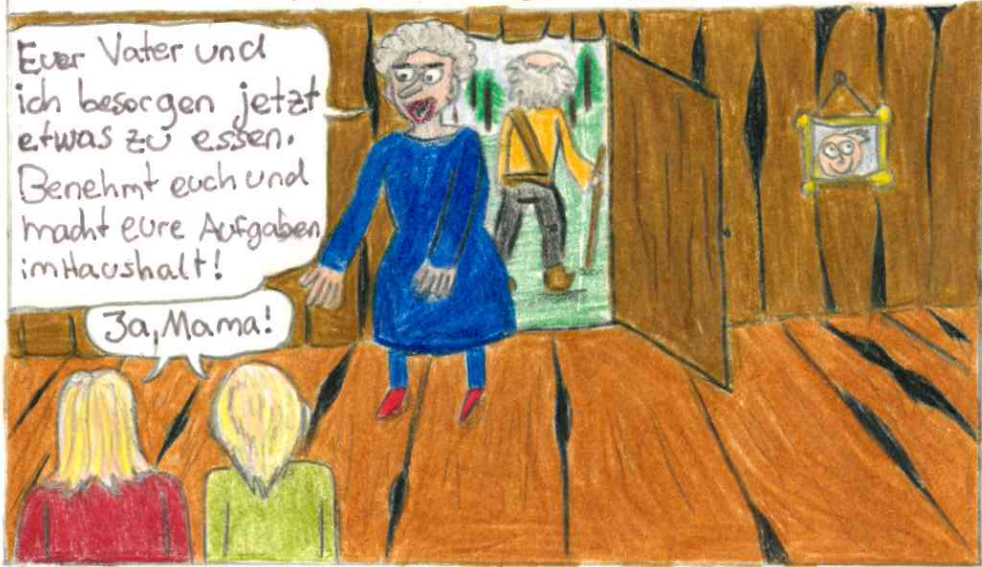 Euer Vater und
ich besorgen jetzt
etwas zu essen.
Benehmt euch und
macht eure Aufgaben
im Haushalt!
Ja, Mama!